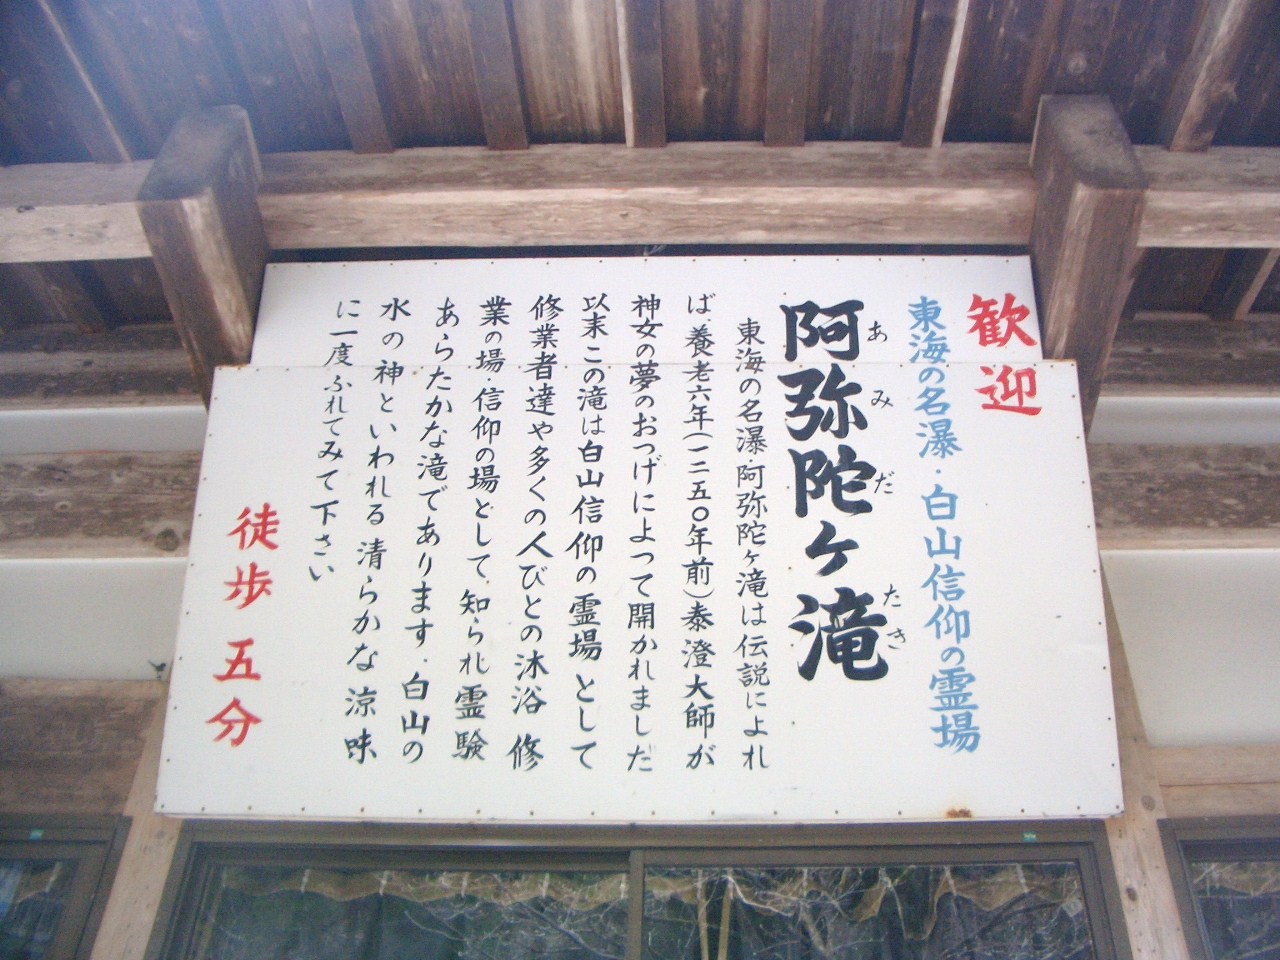 歓迎
東海の名瀑・白山信仰の霊場
阿弥陀ヶ滝
あみだ たき
東海の名瀑・阿弥陀ヶ滝は伝説によれ
ば養老六年(一二五〇年前)泰澄大師が
神女の夢のおつげによって開かれました
以来この滝は白山信仰の霊場として
修業者達や多くの人びとの沐浴修
業の場・信仰の場として、知られ霊験
あらたかな滝であります.白山の
水の神といわれる清らかな涼味
に一度ふれてみて下さい
徒歩 五分